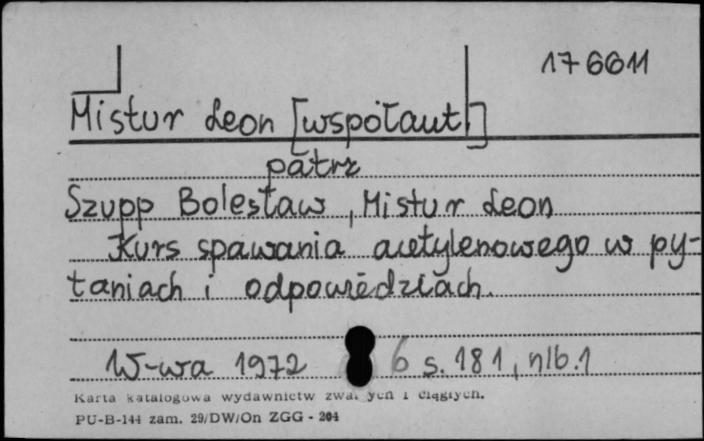 176611
Mistur Leon [współaut]
patrz
Szupp Bolesław, Mistur Leon
Kurs spawania acetylenowego w py-
taniach i odpowiedziach.
W-wa 1972 6 s. 181, nlb. 1
Karta katalogowa wydawnictw zwartych i ciągłych.
PU-B-144 zam. 29/DW/On ZGG - 204